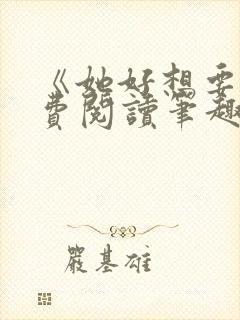 《她好想要
費閱讀筆趣
嚴基雄